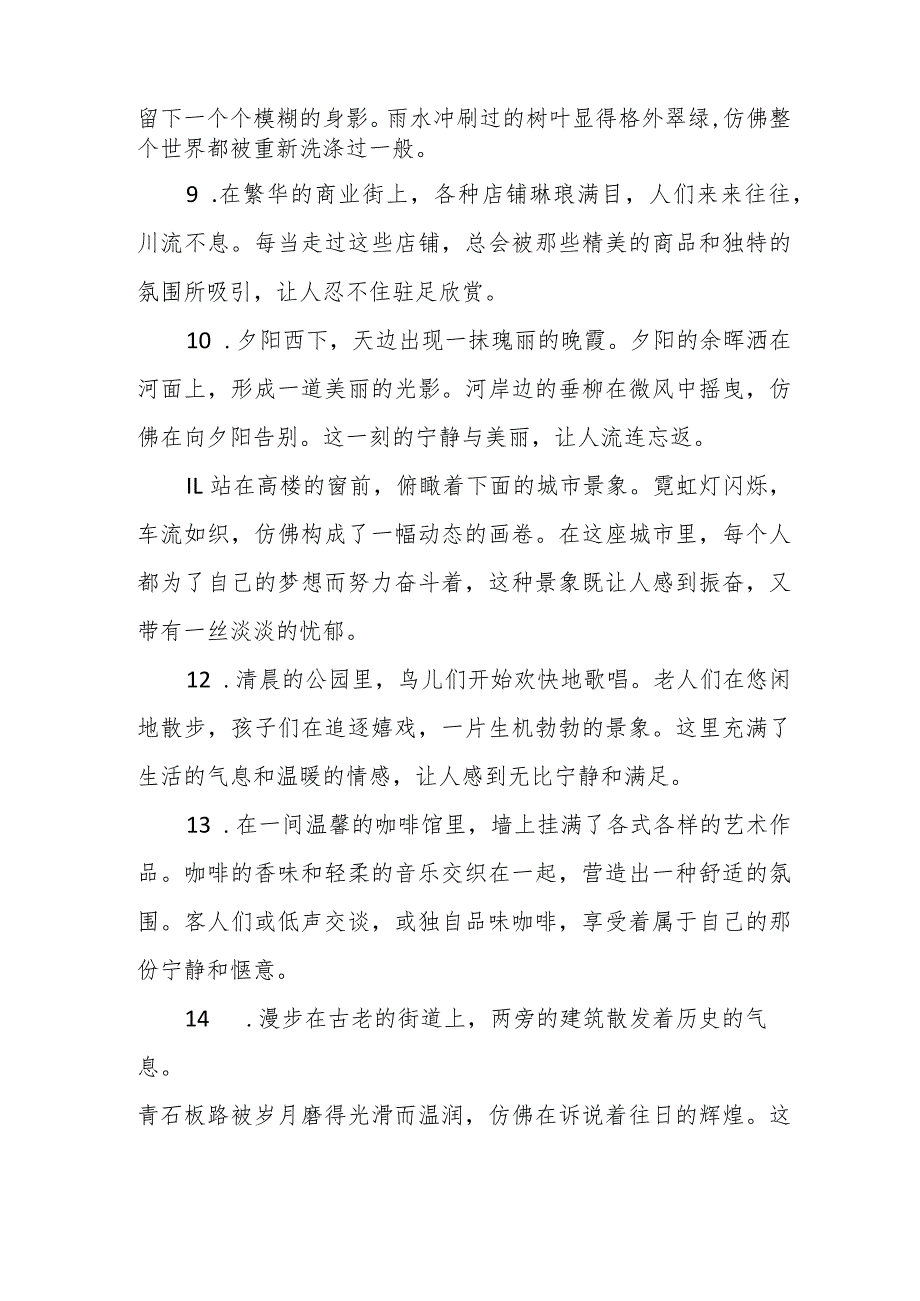 留下一个个模糊的身影。雨水冲刷过的树叶显得格外翠绿,仿佛整
个世界都被重新洗涤过一般。
9 .在繁华的商业街上，各种店铺琳琅满目，人们来来往往，
川流不息。每当走过这些店铺，总会被那些精美的商品和独特的
氛围所吸引，让人忍不住驻足欣赏。
10 .夕阳西下，天边出现一抹瑰丽的晚霞。夕阳的余晖洒在
河面上，形成一道美丽的光影。河岸边的垂柳在微风中摇曳，仿
佛在向夕阳告别。这一刻的宁静与美丽，让人流连忘返。
IL 站在高楼的窗前，俯瞰着下面的城市景象。霓虹灯闪烁，
车流如织，仿佛构成了一幅动态的画卷。在这座城市里，每个人
都为了自己的梦想而努力奋斗着，这种景象既让人感到振奋，又
带有一丝淡淡的忧郁。
12 .清晨的公园里，鸟儿们开始欢快地歌唱。老人们在悠闲
地散步，孩子们在追逐嬉戏，一片生机勃勃的景象。这里充满了
生活的气息和温暖的情感，让人感到无比宁静和满足。
13 .在一间温馨的咖啡馆里，墙上挂满了各式各样的艺术作
品。咖啡的香味和轻柔的音乐交织在一起，营造出一种舒适的氛
围。客人们或低声交谈，或独自品味咖啡，享受着属于自己的那
份宁静和惬意。
14 .漫步在古老的街道上，两旁的建筑散发着历史的气
息。
青石板路被岁月磨得光滑而温润，仿佛在诉说着往日的辉煌。这